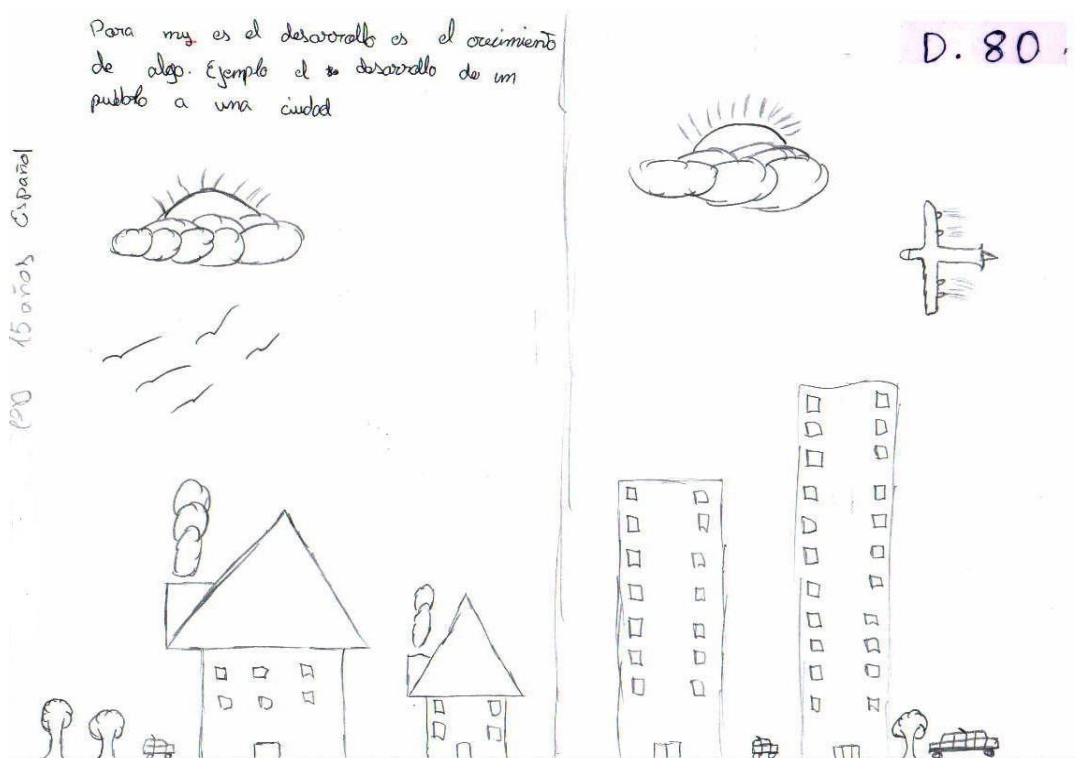 Para my es el desarrollo es el crecimiento
de algo. Ejemplo el desarrollo de un
pueblo a una ciudad
D. 80
15 años Español